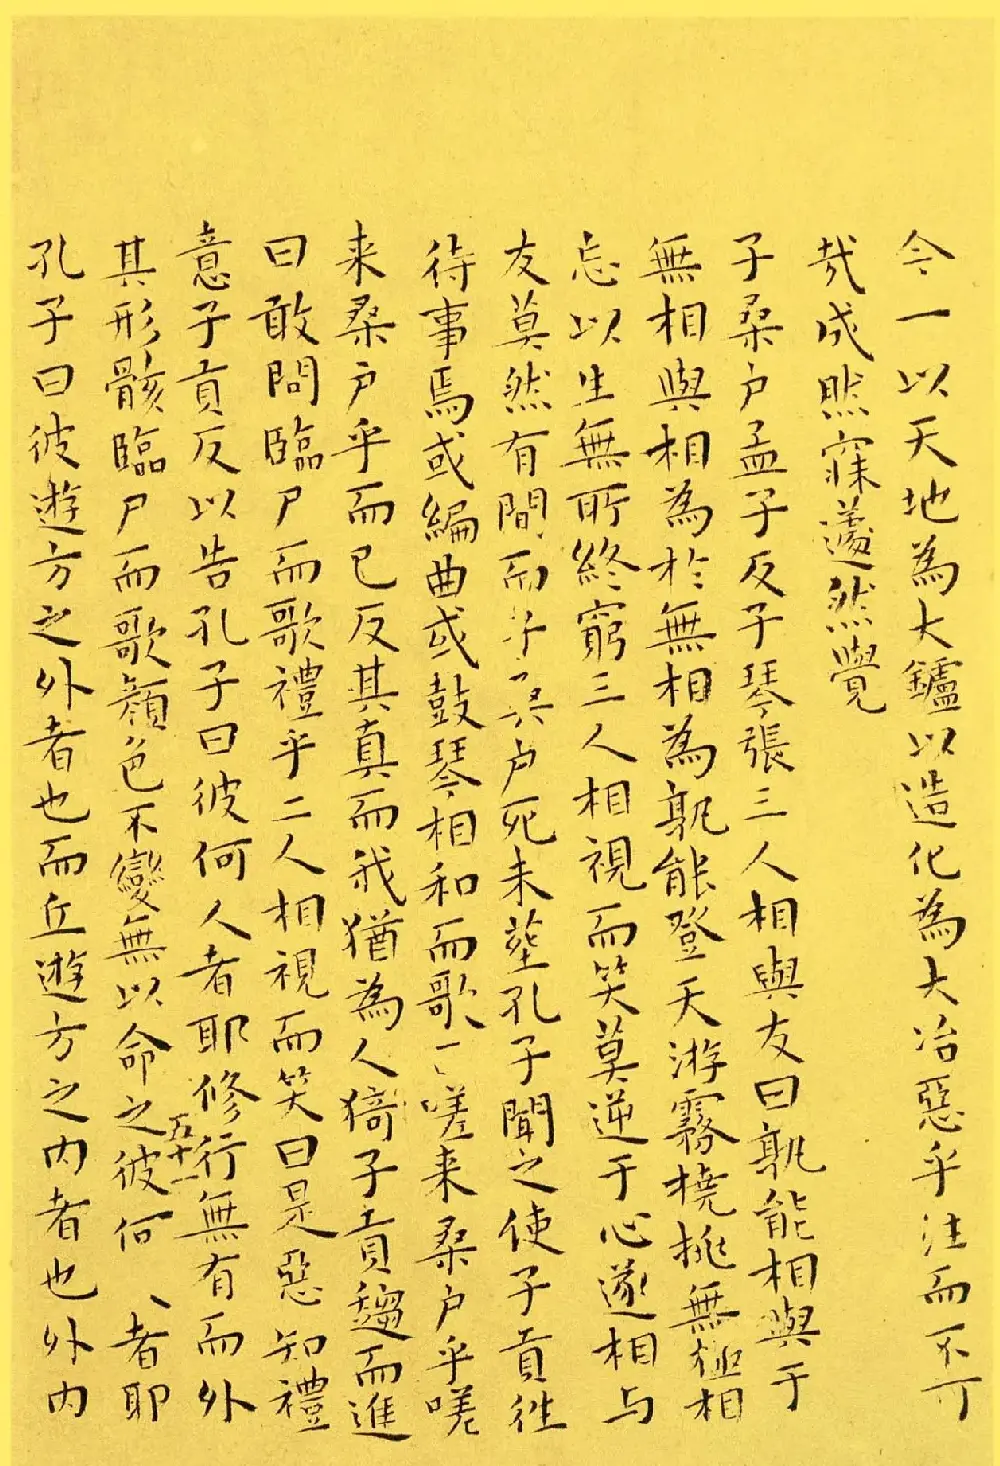 今一以天地為大鑪以造化為大冶惡乎往而不可
哉成然寐蘧然覺
子桑户孟子反子琴張三人相與友曰孰能相與于
無相與相為於無相為孰能登天游霧撓挑無極相
忘以生無所終窮三人相視而笑莫逆于心遂相与
友莫然有間而子桑户死未葬孔子聞之使子貢往
待事焉或編曲或鼓琴相和而歌曰嗟来桑户乎嗟
来桑户乎而已反其真而我猶為人猗子貢趨而進
曰敢問臨尸而歌禮乎二人相視而笑曰是惡知禮
意子貢反以告孔子曰彼何人者耶修行無有而外
其形骸臨尸而歌顏色不變無以命之彼何人者耶
五十一
孔子曰彼遊方之外者也而丘遊方之内者也外内